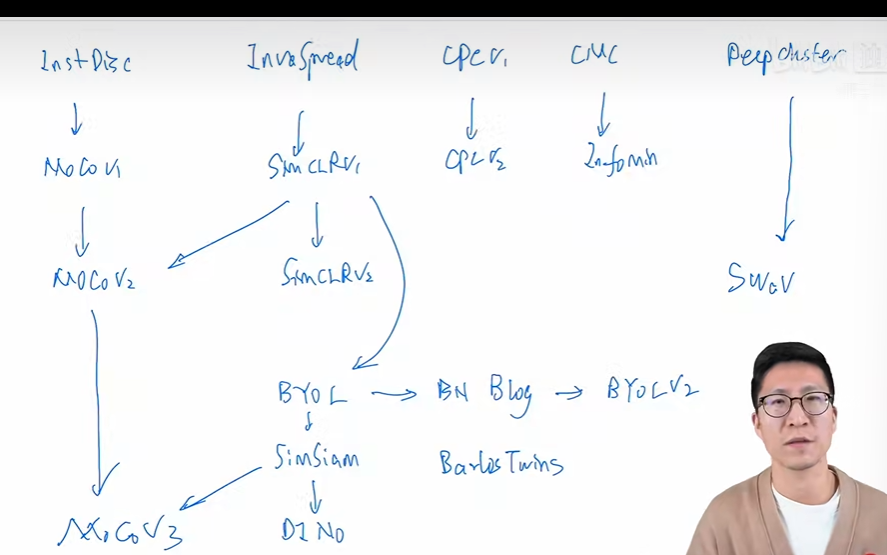 InstDisc InvaSpread CPCV1 CMC Deepcluster
MoCoV1 SimCLRV1 CPCV2 Infomin
MOCOV2 SimCLRV2 SWaV
BYOL → BN Blog → BYOLV2
SimSiam BarlosTwins
MoCoV3 DINO